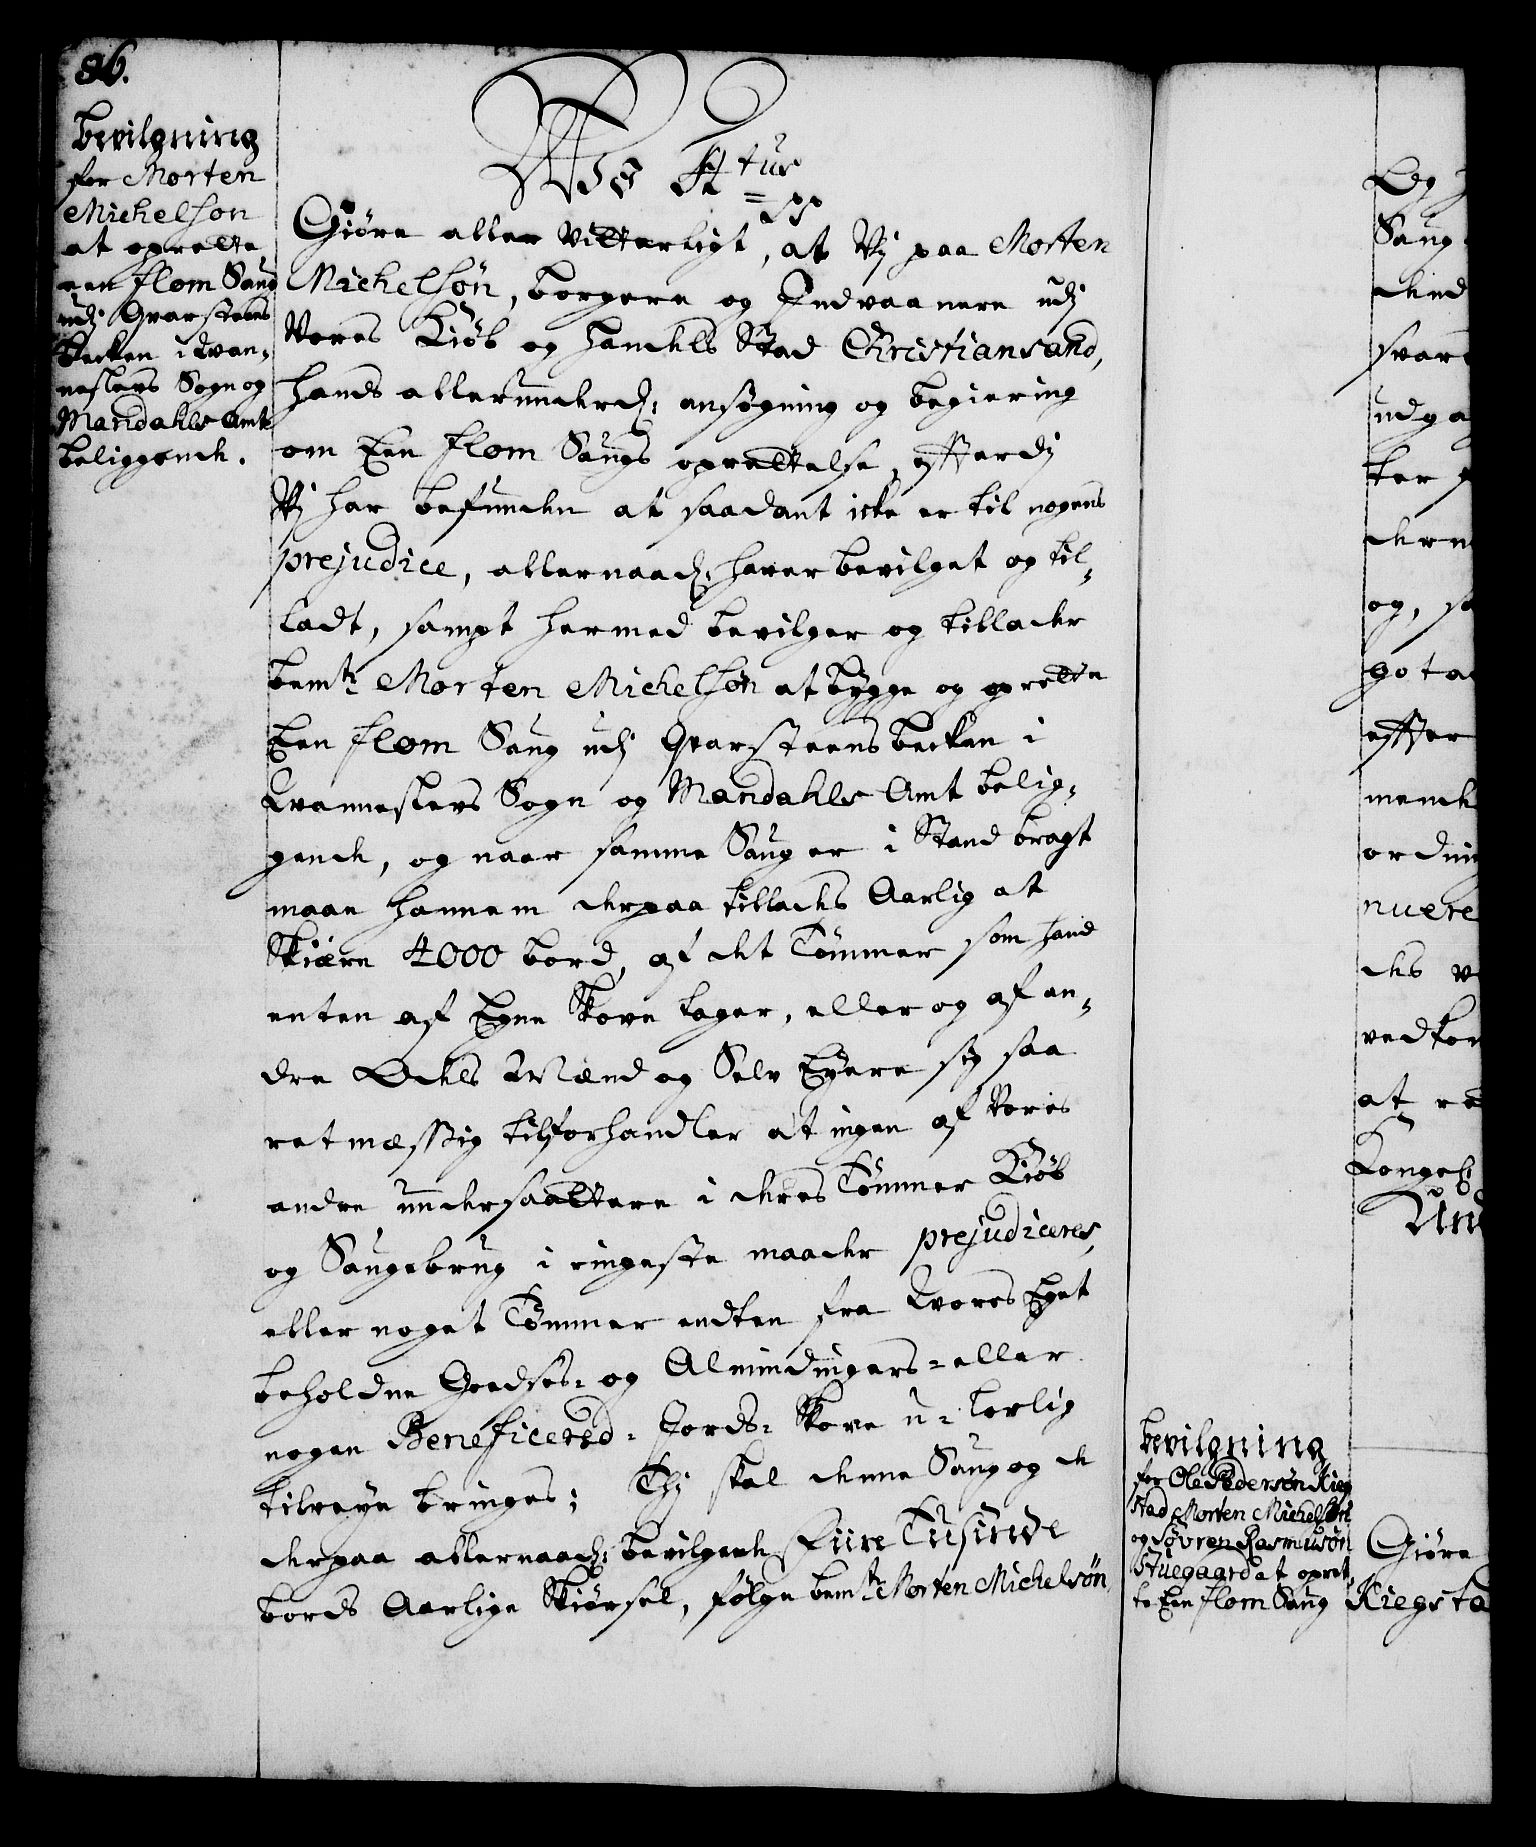 86.
Bevilgning
for Morten
Michelsøn
at oprette
een flom Saug
udj Qvarsteens
Becken i Qvan,
neslers Sogn og
Mandahls Amt
beliggende.
Wj F 4tus
Giøre aller Vitterligt, at Wj paa Morten
Michelsøn, borgere og Indvaanere udj
Vores Kiøb og Handels Stad Christiansand,
hands allerunderd: ansøgning og begiering
om Een flom Saugs oprettelse, efterdj
Wj har befunden at saadant icke er til nogens
prejudice, allernaad: haver bevilget og til,
ladt, sampt hermed bevilger og tillader
bemte Morten Michelsøn at bygge og oprette
Een flom Saug udj Qvarsteens becken i
Qvanneslers Sogn og Mandahls Amt belig,
gende, og naar samme Saug er i Stand bragt
maae hannem derpaa tillades Aarlig at
Skiære 4000 bord, af det Tømmer som hand
enten af Egne Skove tager, eller og af an,
dre Odels Mænd og Selv Eyere sig saa
retmæssig tilforhandler at ingen af Vores
andre undersaattere i deres Tømmer Kiøb
og Saugebrug i ringeste maader prejudiceres,
eller noget Tømmer endten fra Vores Eget
beholdne Goedses- og Almindingers- eller
nogen Beneficered- Jords- Skove u-lovlig
tilveye bringes; Thj skal denne Saug og de
derpaa allernaad: bevilgede Fiire Tusinde
bords Aarlige Skiørsel, følge bemte Morten Michelsøn,
Bevilgning
for Ole Pedersøn Kieg
stad Morten Michelsøn
og Søvren Rasmusøn
Stuegaard at opret,
te Een flom Saug
Saug
ordnin
nuere
ved kom
Kongel:
Und
Giøre
Kiegsta